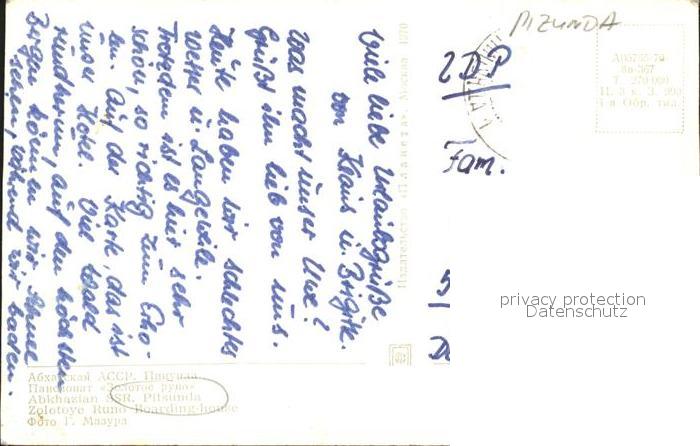 Viele liebe Urlaubsgrüße
von Klaus u. Brigitte.
Was macht unser Uwe?
Grüßt ihn lieb von uns.
Heute haben wir schlechtes
Wetter u. Langeweile.
Trotzdem ist es hier sehr
schön, so richtig zum Erho-
len. Auf der Karte, das ist
unser Hotel. Viel Wald
rundherum, auf den höchsten
Bergen können wir Schnee
sehen, während wir baden.
Издательство «Планета». Москва. 1970
PIZUNDA
2DP
Fam.
5
D
А05755-70
Т. 270 000
1-я Обр. тип.
privacy protection
Datenschutz
Абхазская АССР. Пицунда
Пансионат «Золотое руно»
Abkhazian SSR. Pitsunda
Zolotoye Runo Boarding-house
Фото Г. Мазура